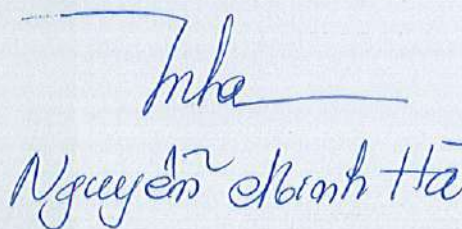 Mha
Nguyễn Minh Hà